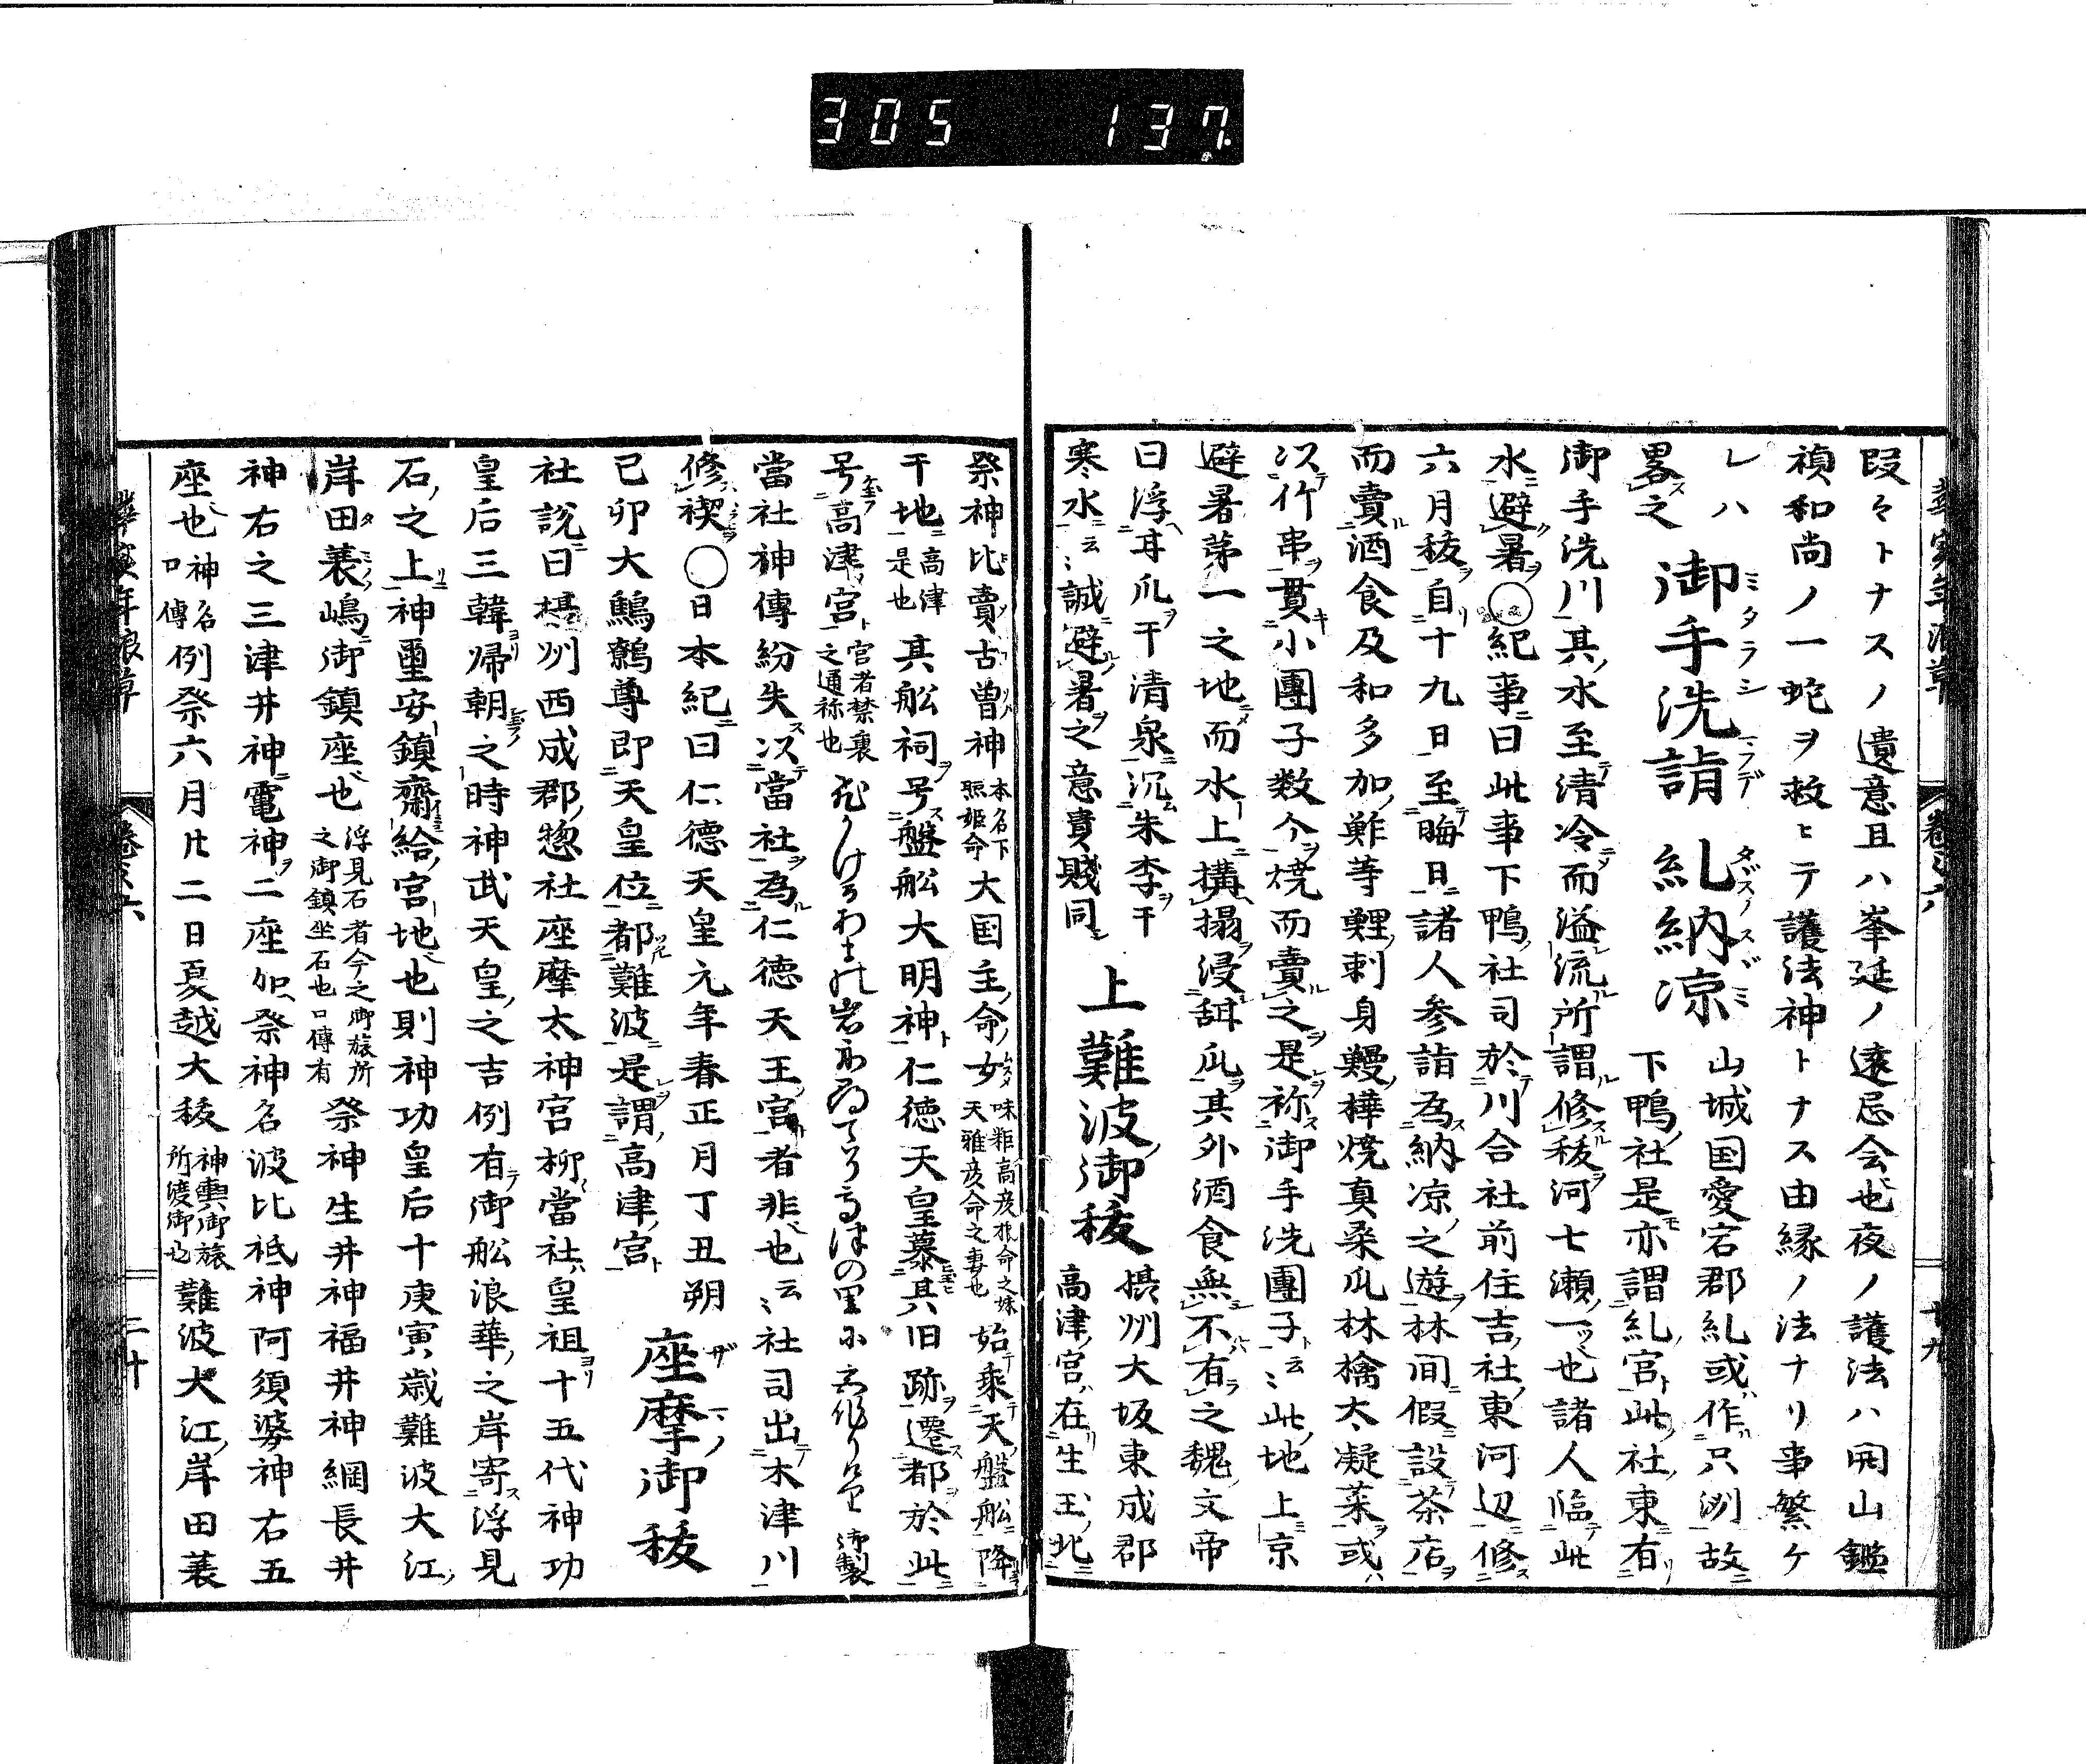 305 137
段々トナスノ遺意且ハ峯延ノ遠忌会也夜ノ護法ハ開山鑑
禎和尚ノ一蛇ヲ救ヒテ護法神トナス由縁ノ法ナリ事繁ケ
レハ
畧之
御手洗詣 糺納凉
山城国愛宕郡糺或作只洲故
下鴨社是亦謂糺宮此社東有
御手洗川其水至清冷而溢流所謂修秡河七瀬一也諸人臨此
水避暑○紀事曰此事下鴨社司於川合社前住吉社東河辺修
六月秡自十九日至晦日諸人参詣為納凉之遊林間假設茶店
而賣酒食及和多加鮓等鯉刺身鰻樺焼真桑瓜林檎太凝菜或
以竹串貫小團子数个焼而賣之是祢御手洗團子云〻此地上京
避暑苐一之地而水上搆搨浸甜瓜其外酒食無不有之魏文帝
曰浮甘瓜于清泉沉朱李于
寒水云〻誠避暑之意貴賎同
上難波御秡
摂州大坂東成郡
高津宮在生玉北
祭神比賣古曽神
本名下
照姫命
大国主命女
味耜高彦根命之妹
天雅彦命之妻也
始乘天盤舩降
于地
高津
是也
其舩祠号盤舩大明神仁徳天皇慕其旧跡遷都於此
号高津宮
宮者禁裏
之通祢也
御製
當社神傳紛失以當社為仁徳天王宮者非也云〻社司出木津川
修禊○日本紀曰仁徳天皇元年春正月丁丑朔
己卯大鷦鷯尊即天皇位都難波是謂高津宮
座摩御秡
社説曰摂州西成郡惣社座摩太神宮柳當社皇祖十五代神功
皇后三韓帰朝之時神武天皇之吉例有御舩浪華之岸寄浮見
石之上神璽安鎮齋給宮地也則神功皇后十庚寅歳難波大江
岸田蓑嶋御鎮座也
浮見石者今之御旅所
之御鎮坐石也口傳有
祭神生井神福井神綱長井
神右之三津井神竃神二座加祭神名波比祗神阿須婆神右五
座也
神名
口傳
例祭六月廿二日夏越大秡
神輿御旅
所渡御也
難波大江岸田蓑
卷之六
廿九
三十